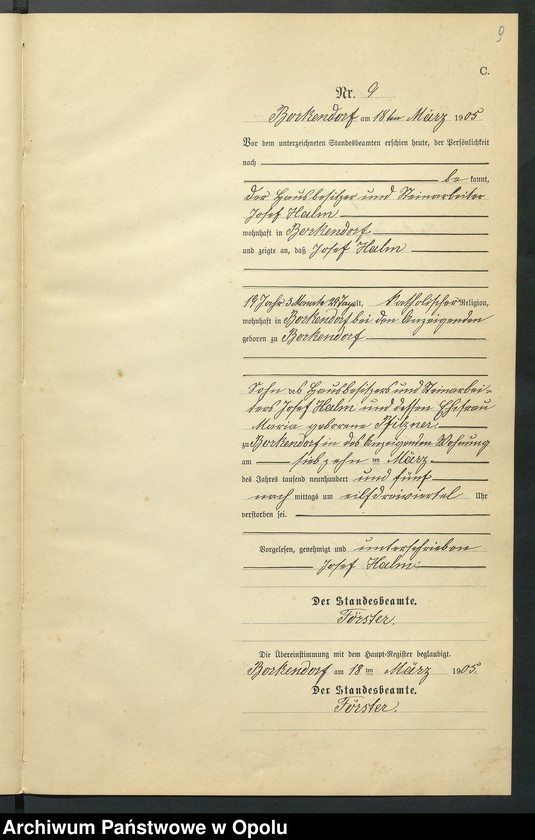 9
C.
Nr. 9
Borkendorf am 18ten März 1905
Vor dem unterzeichneten Standesbeamten erschien heute, der Persönlichkeit
nach
be kannt,
der Hausbesitzer und Steinarbeiter
Josef Halm
wohnhaft in Borkendorf
und zeigte an, daß Josef Halm
19 Jahr 3 Monate alt, katholischer Religion,
wohnhaft in Borkendorf bei den Anzeigenden
geboren zu Borkendorf
Sohn des Hausbesitzers und Steinarbei-
ters Josef Halm und dessen Ehefrau
Maria geborene Pilzner
zu Borkendorf in des Anzeigenden Wohnung
am siebzehn ten März
des Jahres tausend neunhundert und fünf
nach mittags um eilfdreiviertel Uhr
verstorben sei.
Vorgelesen, genehmigt und unterschrieben
Josef Halm.
Der Standesbeamte.
Förster.
Die Übereinstimmung mit dem Haupt-Register beglaubigt.
Borkendorf am 18 ten März 1905.
Der Standesbeamte.
Förster.
Archiwum Państwowe w Opolu